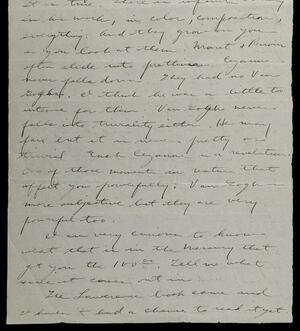 It is true. There is infinite variety
in his work, in color, composition,
everything. And they grow on you
as you look at them. Monet & Renoir
often slide into prettiness. Cezanne
never falls down. They had no Van
Goghs. I think he was a little to
intense for them. Van Gogh never
falls into triviality either. He may
fail but it is never pretty or
trivial. Each Cezanne is a revelation.
One of those moments in nature that
affect you powerfully. Van Gogh is
more subjective but they are very
powerful too.
I am very curious to know
what that is in the Nursery that
got you the 100.00. Tell me what
it comes out in.
The Lawrence book came and
I haven't had a chance to read it yet